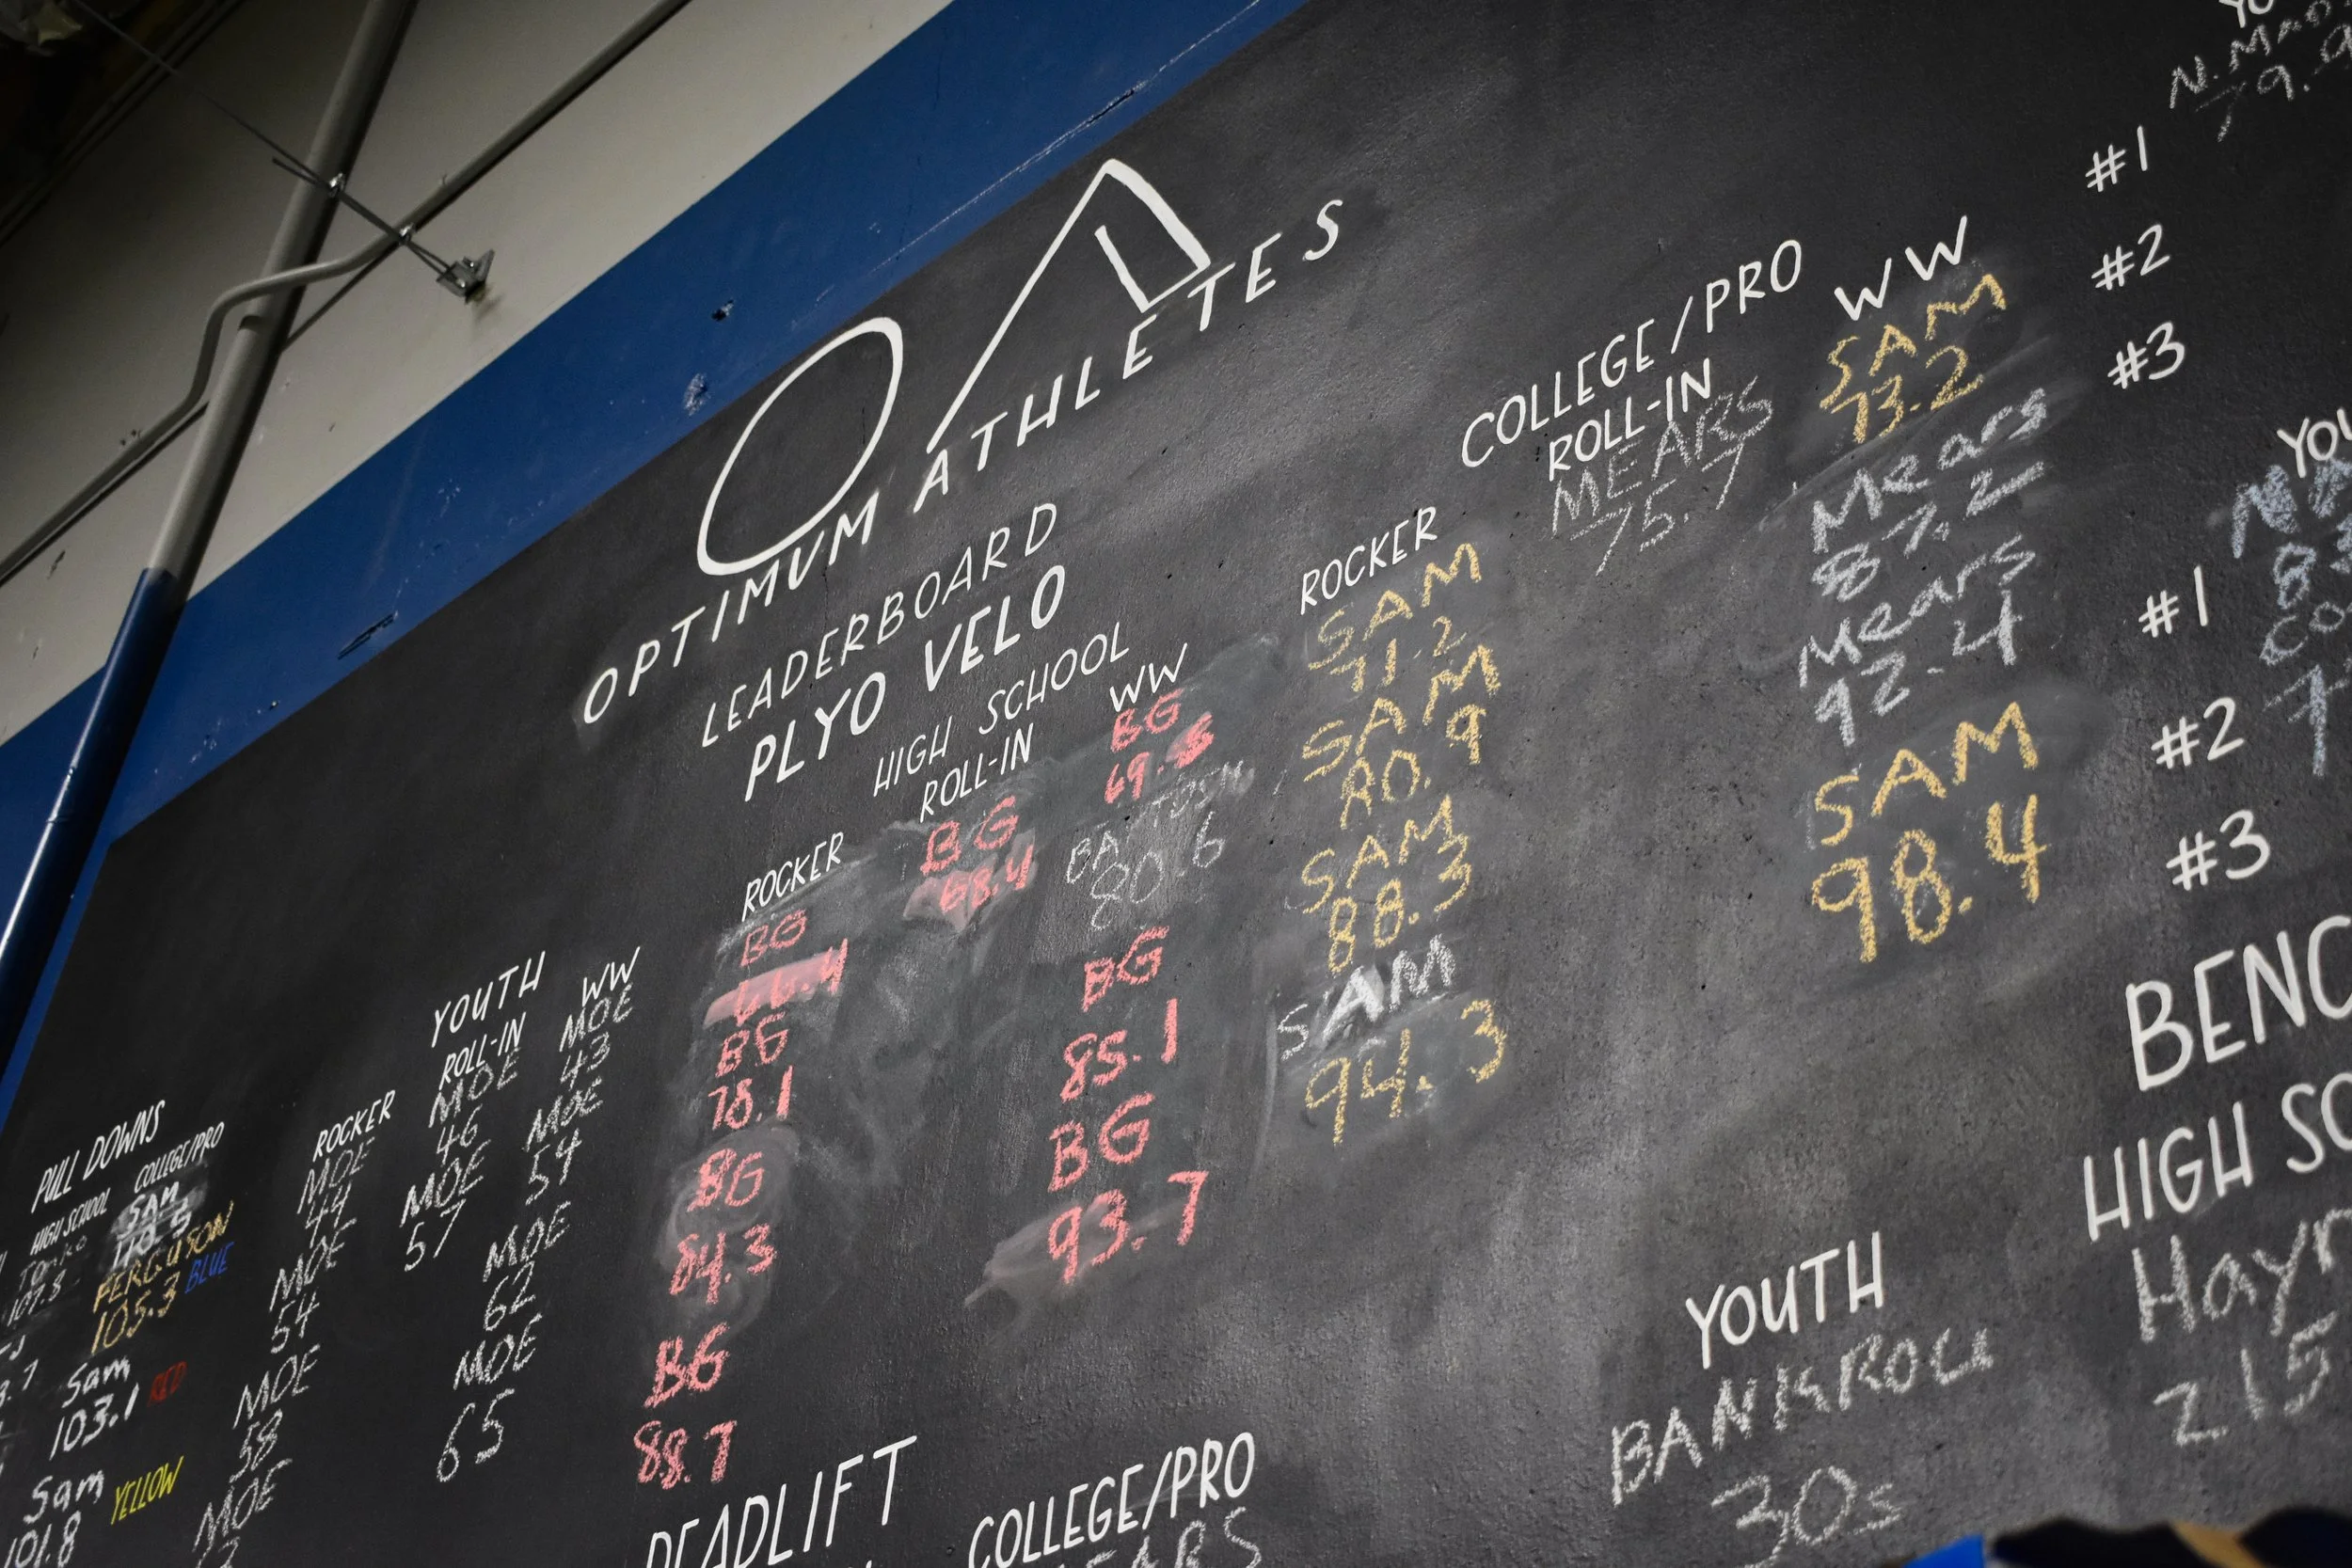 OA
OPTIMUM ATHLETES
LEADERBOARD
PLYO VELO
PULL DOWNS
HIGH SCHOOL
107.8
COLLEGE/PRO
SAM
FERGUSON
105.3 BLUE
Sam
103.1 RED
Sam
101.8 YELLOW
YOUTH
ROCKER
MOE
44
MOE
54
MOE
58
MOE
ROLL-IN
MOE
46
MOE
57
WW
MOE
43
MOE
54
MOE
62
MOE
65
HIGH SCHOOL
ROCKER
BG
66.4
BG
78.1
BG
84.3
BG
88.7
ROLL-IN
BG
68.4
WW
BG
69.5
80.6
BG
85.1
BG
93.7
COLLEGE/PRO
ROCKER
SAM
71.2
SAM
80.9
SAM
88.3
SAM
94.3
ROLL-IN
MEARS
75.7
WW
SAM
73.2
Mears
87.2
Mears
92.4
SAM
98.4
#1
#2
#3
YOU
#1
#2
#3
DEADLIFT
COLLEGE/PRO
YOUTH
BANKROLL
30s
BENC
HIGH SC
Hayn
215